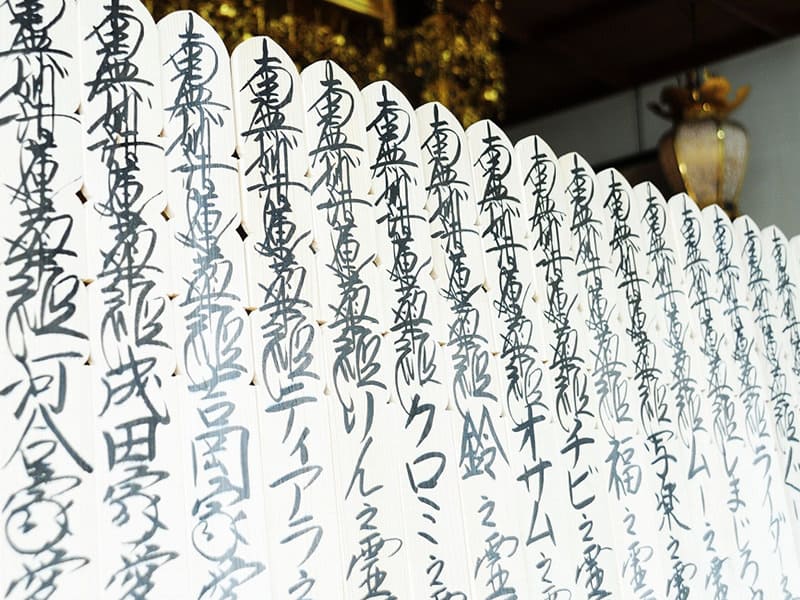 南無妙法蓮華経
南無妙法蓮華経ライダー
南無妙法蓮華経しまじろ
南無妙法蓮華経ムー之霊
南無妙法蓮華経写楽之
南無妙法蓮華経福之霊
南無妙法蓮華経チビ之霊
南無妙法蓮華経オサム之
南無妙法蓮華経鈴之霊
南無妙法蓮華経クロミ之
南無妙法蓮華経りん之霊
南無妙法蓮華経ティアラ之
南無妙法蓮華経吉岡家愛
南無妙法蓮華経成田家愛
南無妙法蓮華経河合家愛